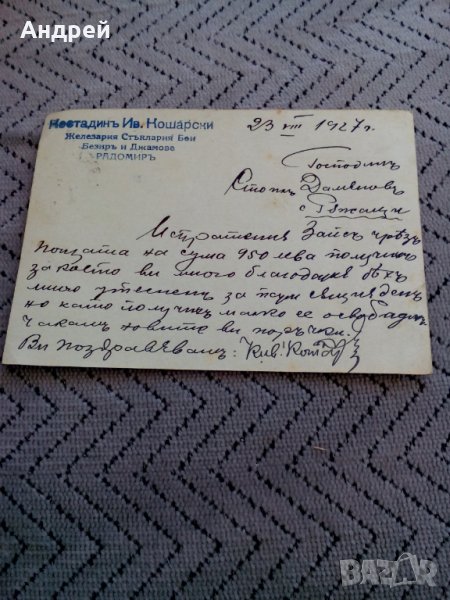 Андрей
Костадинъ Ив. Кошарски
Железария Стъклария Бои
Безиръ и Джамове
РАДОМИРЪ
23 VIII 1927 г.
Господинъ
Стоянъ Дамяновъ
с.
Изпратения Запись чрѣзъ
пощата на сума 950 лева получихъ
за което ви много благодаря бѣхъ
много утесненъ за тоя сѫщия денъ
но като получихъ малко се освободихъ
чакамъ новите ви поръчки.
Ви поздравявамъ:
BAZAR